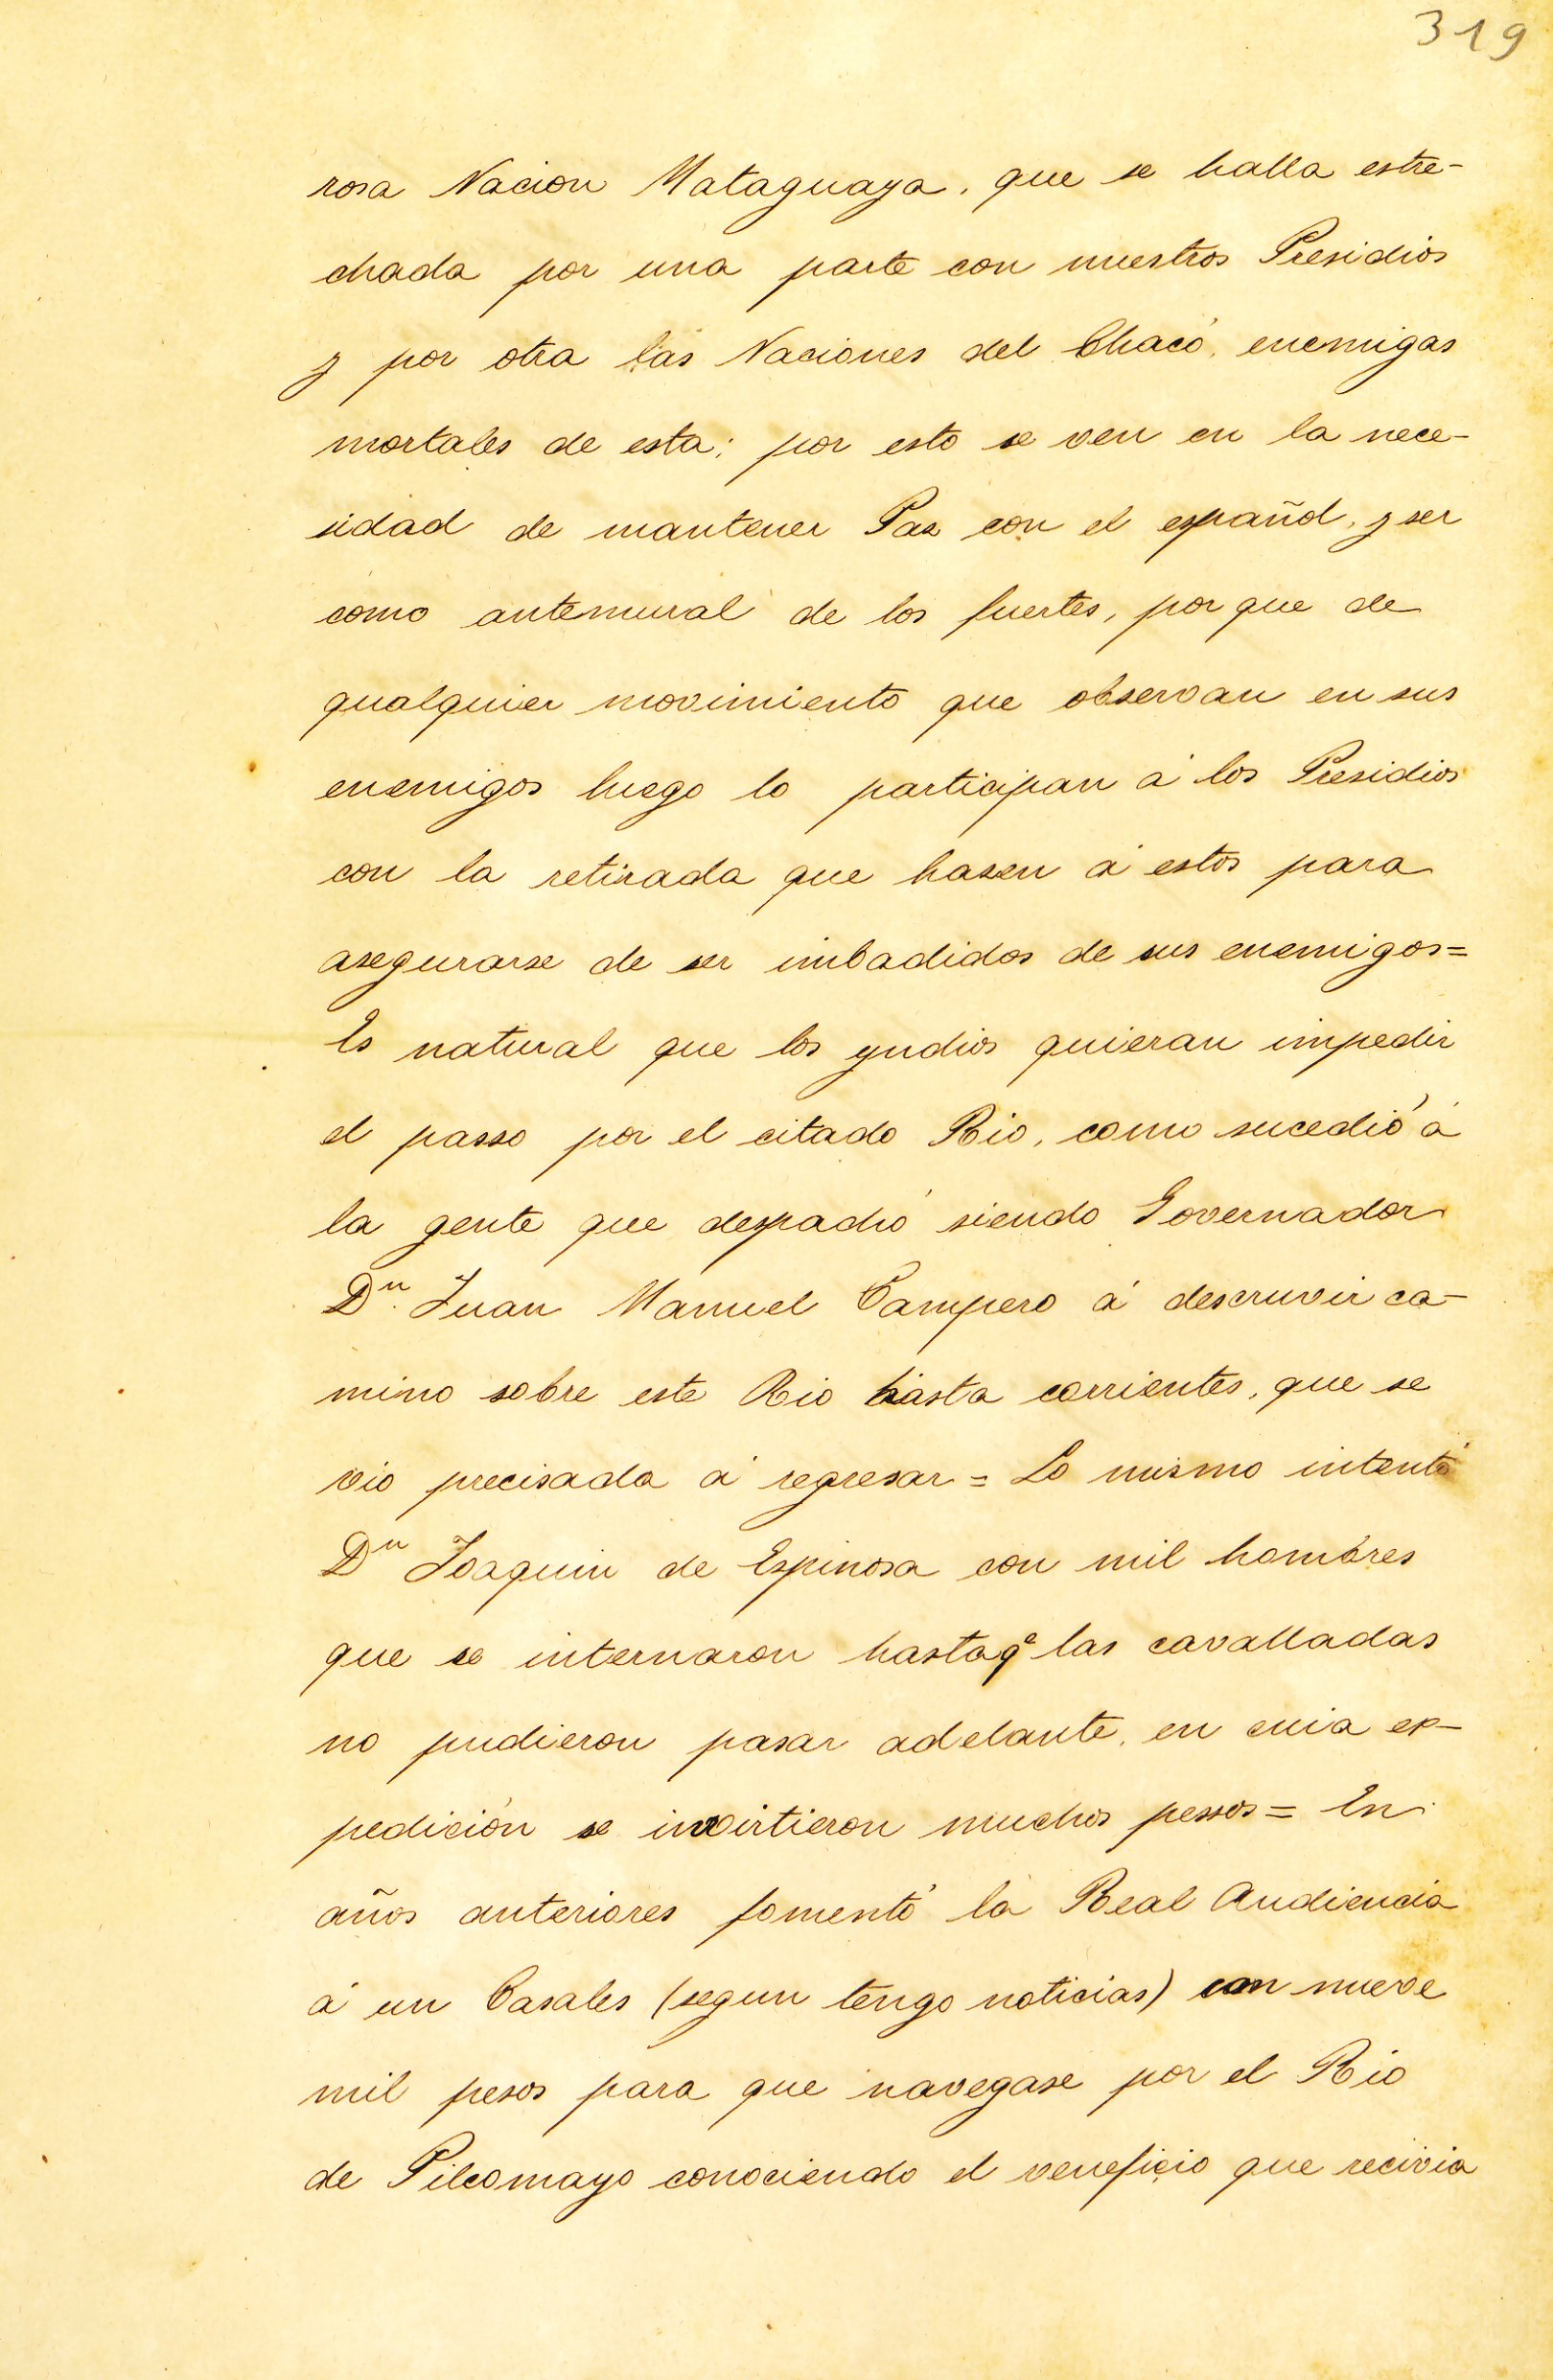 319
rosa Nacion Mataguaya, que se halla estre-
chada por una parte con nuestros Presidios
y por otra las Naciones del Chaco, enemigas
mortales de esta; por esto se ven en la nece-
sidad de mantener Paz con el español, y ser
como antemural de los fuertes, por que de
qualquier movimiento que observan en sus
enemigos luego lo participan á los Presidios
con la retirada que hazen á estos para
asegurarse de ser imbadidos de sus enemigos=
Es natural que los yndios quieran impedir
el passo por el citado Rio, como sucedió á
la gente que despachó siendo Governador
Dn. Juan Manuel Campero á descruvir ca-
mino sobre este Rio hasta corrientes, que se
vio precisada á regresar = Lo mismo intentó
Dn Joaquin de Espinosa con mil hombres
que se internaron hasta qe las cavalladas
no pudieron pasar adelante, en cuia ex-
pedición se invirtieron muchos pessos = En
años anteriores fomentó la Real Audiencia
á un Casales (segun tengo noticias) con nueve
mil pesos para que navegase por el Rio
de Pilcomayo conociendo el veneficio que recivia